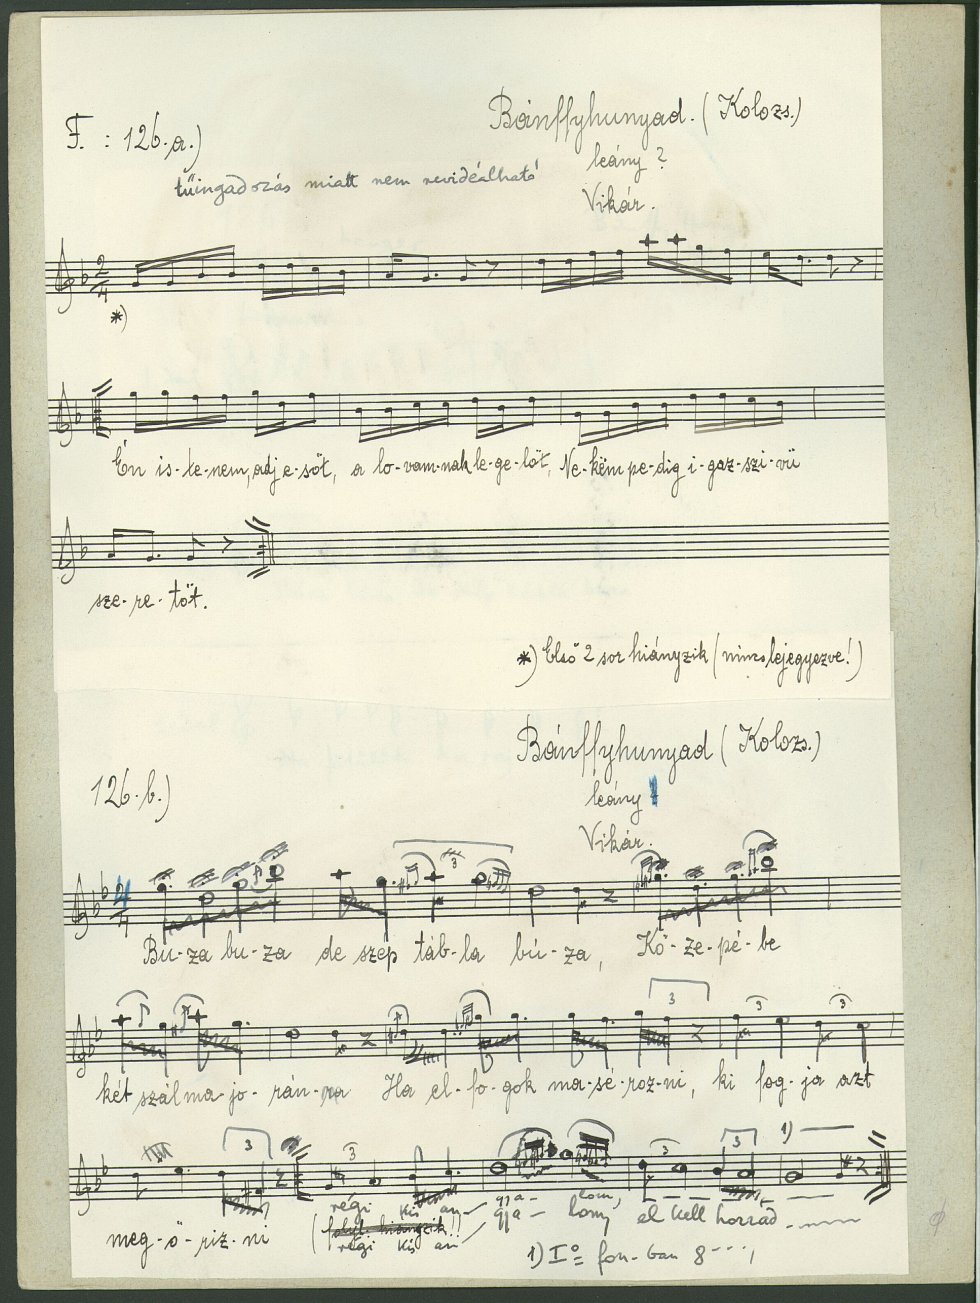 F. : 126.a.)
Bánffyhunyad. (Kolozs.)
leány ?
Vikár.
tűingadozás miatt nem revidéálható
2/4
*)
Én is-te-nem, adj e-sőt, a lo-vam-nak le-ge-lőt, Ne-këm pe-dig i-gaz-szi-vü
sze-re-tőt.
*) Első 2 sor hiányzik (nincs lejegyezve!)
126.b.)
Bánffyhunyad (Kolozs.)
leány
Vikár.
3
Bu-za bu-za de szép táb-la bú-za, Kö-ze-pé-be
3 3 3
két szál ma-jo-rán-na Ha el-fo-gok ma-sé-roz-ni, ki fog-ja azt
3 3 3 3 1)
régi kis an- gya- lom,
meg-ő-riz-ni régi kis an gya- lom, el kell horrad
1) I⁰ fon-ban 8